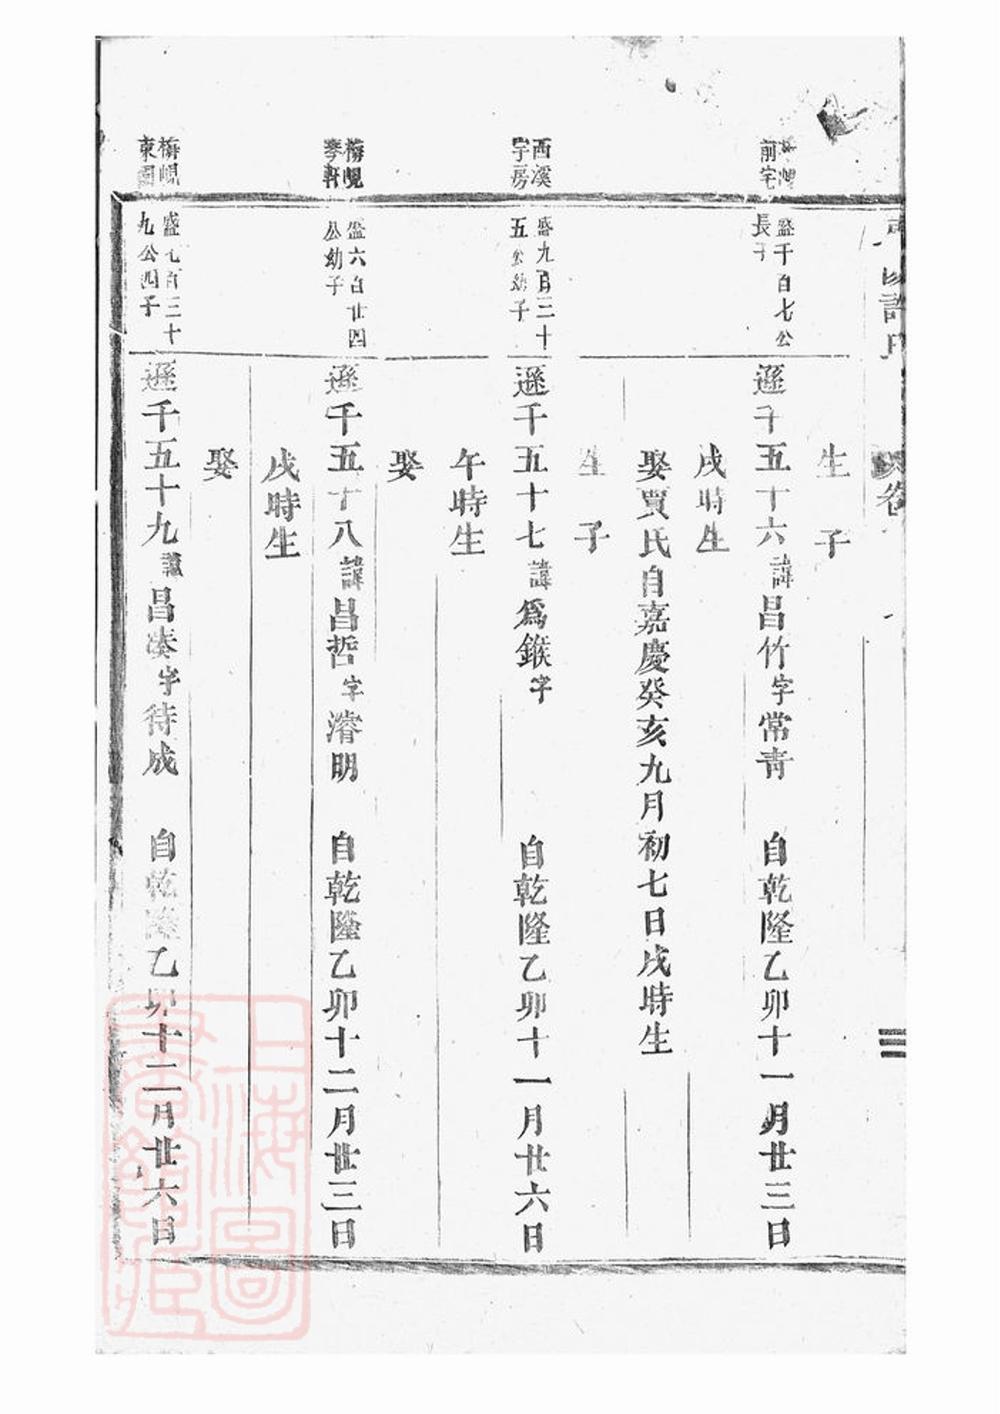 許氏
卷
生 子
前宅
盛千百七公
長子
遜千五十六諱昌竹字常青 自乾隆乙卯十一月廿三日
戌時生
娶賈氏自嘉慶癸亥九月初七日戌時生
生 子
西溪
宇房
盛九百三十
五公幼子
遜千五十七諱爲鍭字 自乾隆乙卯十一月廿六日
午時生
娶
梅峴
琴軒
盛六百廿四
公幼子
遜千五十八諱昌哲字濬明 自乾隆乙卯十二月廿三日
戌時生
娶
梅峴
東園
盛七百三十
九公四子
遜千五十九諱昌湊字待成 自乾隆乙卯十二月廿六日
上海圖
書館藏